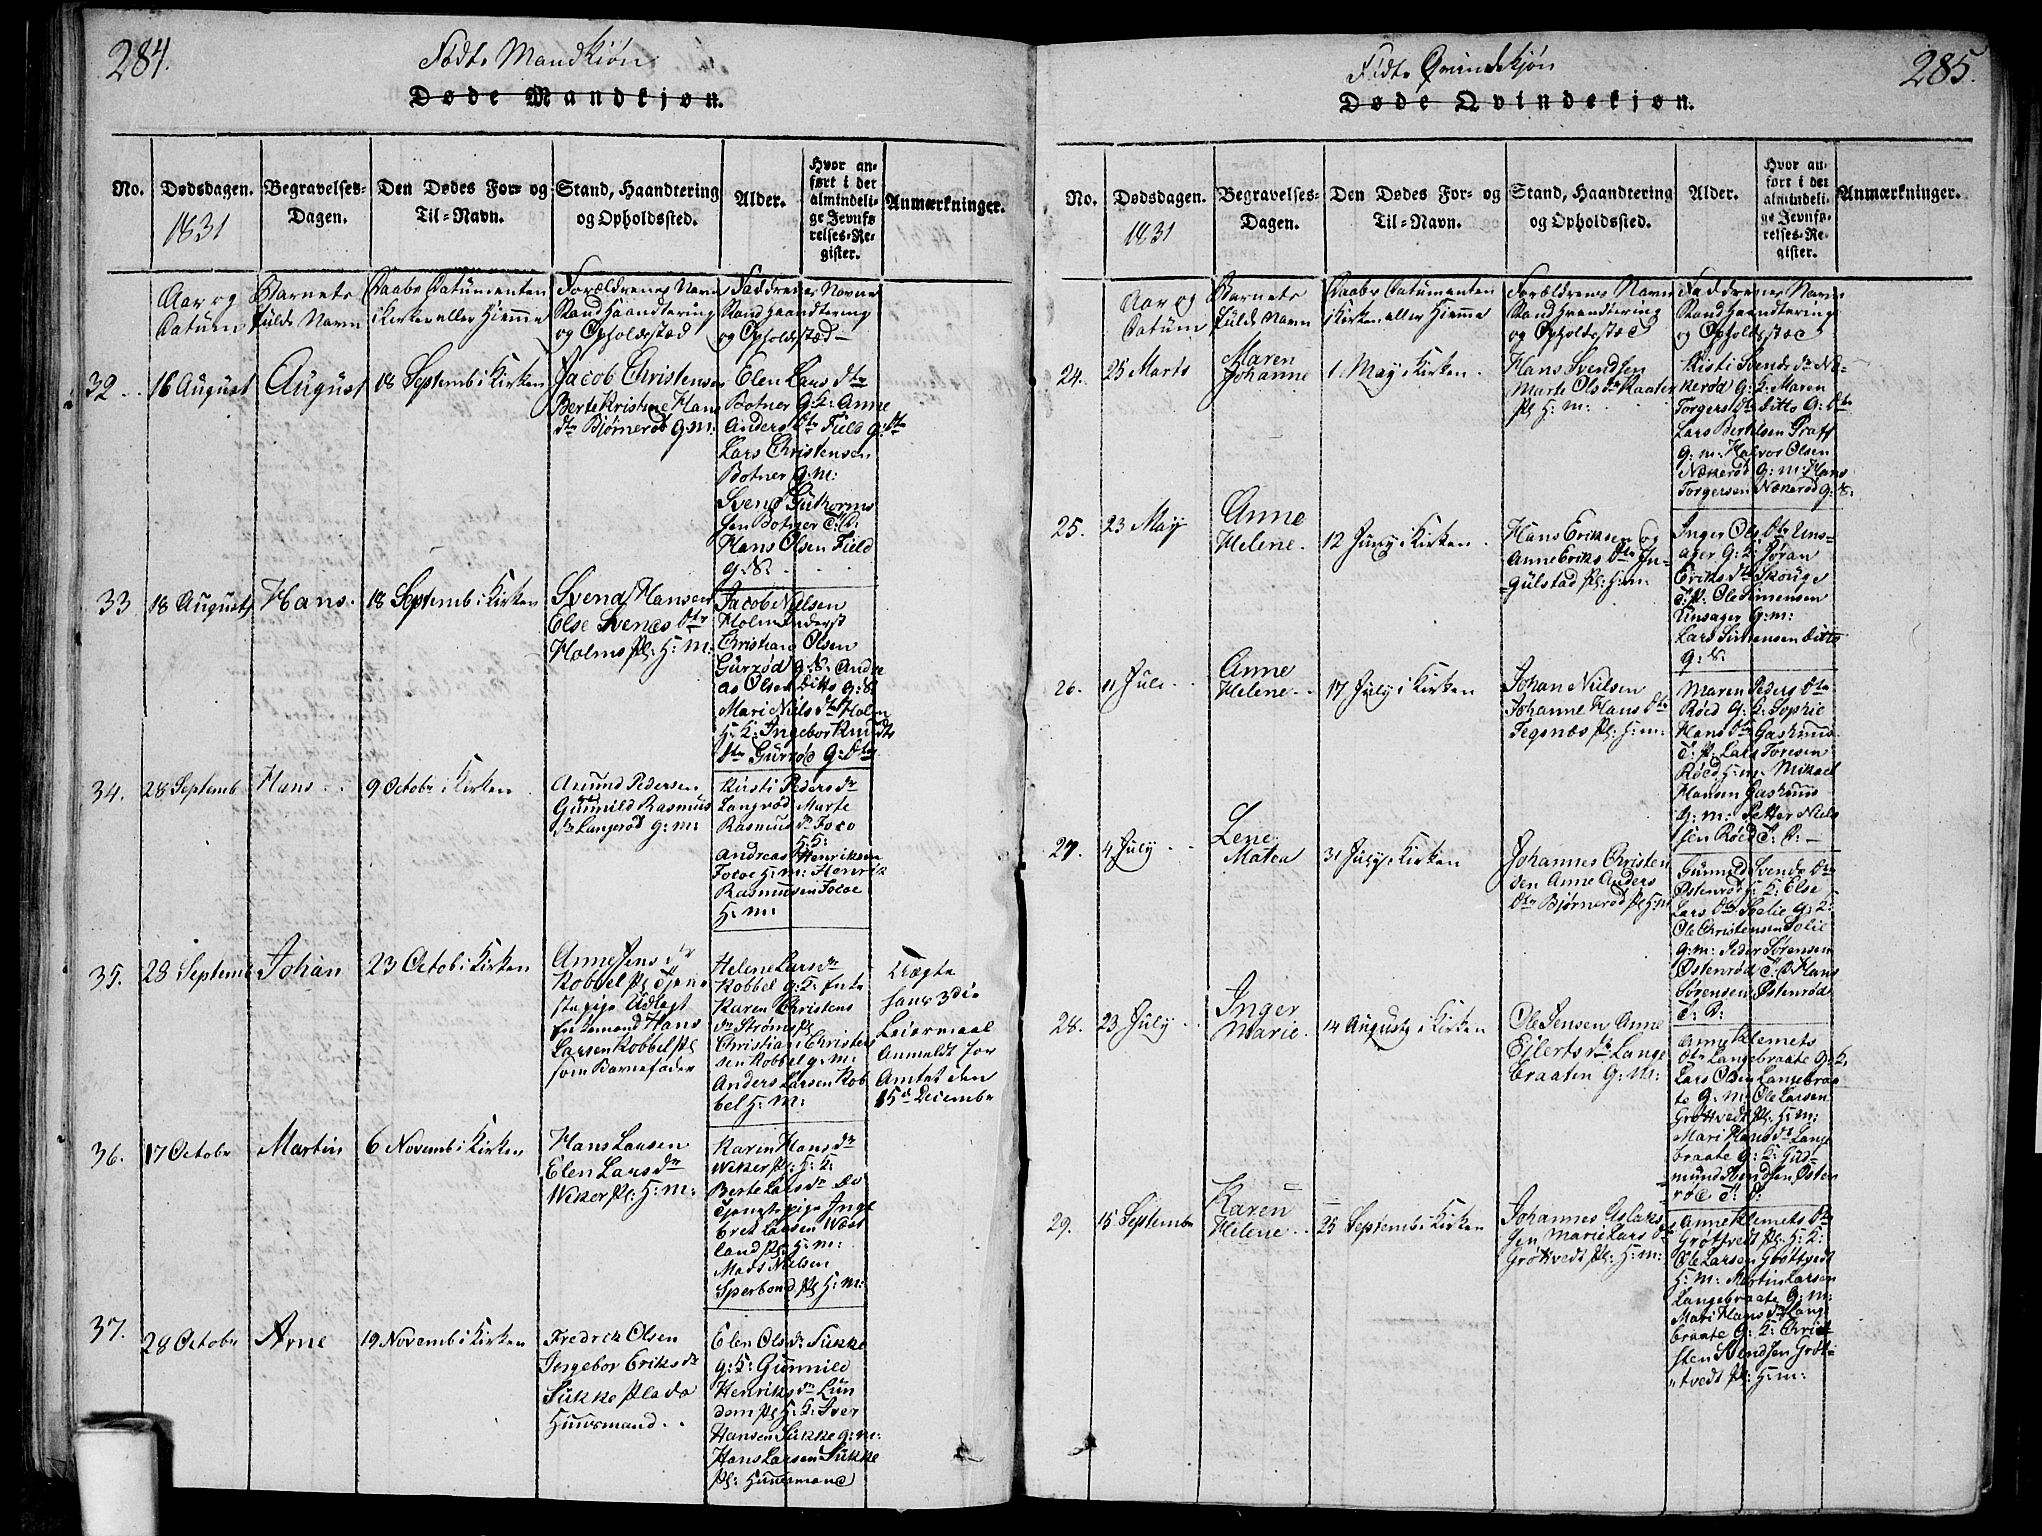 284.
Födte Mandkiön
Døde Mandkjøn.
No.
Dødsdagen.
1831
Begravelses-
Dagen.
Den Dødes For- og
Til-Navn.
Stand, Haandtering
og Opholdssted.
Alder.
Hvor an-
ført i det
almindeli-
ge Jevnfø-
relses-Re-
gister.
Anmærkninger.
Aar og
Datum
Barnets
fulde Navn
Daabs Datum enten
i Kirken eller Hiemme
Forældrenes Navn
Stand Haandtering
og Opholdsstæd
Faddrenes Navne
Stand Haandtering
og Opholdsstæd
32.
16 August
August
18 Septemb i Kirken
Jacob Christensen
Berte Kristine Hans
dtr Bjørnerød g: M:
Elen Lars dtr
Botner g: k: Anne
Anders dtr Field g: dtr
Lars Christensen
Botner g: m:
Svend Guthorms
sen Botner T: D:
Hans Olsen Field
g: S:
33
18 August
Hans.
18 Septemb i Kirken
Svend Hansen
Else Svends dtr
Holms pl: H: M:
Jacob Nielsen
Holm
Christian Olsen
Gurrød g: S: Andre
as Olsen Ditto g: S:
Mari Niels dtr Holm
H: k: Ingebor Knudts
dtr Gurrød g: dtr
34.
28 Septemb
Hans
9 Octobr i Kirken
Amund Pedersen
Gunnild Rasmus
dr Langerød g: m:
Kirsti Peders dr
Langrød Marte
Rasmus dr Foco
H: k:
Andreas Henriksen
Focoe H: m: Henrik
Rasmussen Focoe
H: m:
35.
28 Septemb
Johan
23 Octob i Kirken
Anne Jens dr
Kobbel pl Tjene
stepige Udlagt
Hans
Larsen Kobbel pl
som Barnefader
Helene Lars dr
Kobbel g: k:
Karen Christens
dr Strøms pl
Christian Christen
sen Kobbel g: m:
Anders Larsen Kob
bel H: m:
Uægte
hans 3die
Leiermaal
Anmeldt for
Amtet den
15de Decembr
36.
17 Octobr
Martin
6 Novemb i Kirken
Hans Larsen
Elen Lars dr
Wiker pl: H: M:
Karen Hans dr
Wiker pl: H: k:
Berte Lars dr do
Tjenestepige Inge
bret Larsen West
land pl: H: m:
Mads Nielsen
Sperbond pl H: M:
37.
28 Octobr
Arne
19 Novemb i Kirken
Fredrik Olsen
Ingebor Eriks dr
Sukke Plads
Huusmand
Elen Ols dr Sukke
g: k: Gunnild
Henriks dr Lun
dem pl: H: k: Iver
Hansen Sukke g: m:
Hans Larsen Sukke
pl: Huusmand
285.
Födte Qvindekjön
Døde Qvindekjøn.
No.
Dødsdagen.
1831
Begravelses-
Dagen.
Den Dødes For- og
Til-Navn.
Stand, Haandtering
og Opholdssted.
Alder.
Hvor an-
ført i det
almindeli-
ge Jevnfø-
relses-Re-
gister.
Anmærkninger.
Aar og
Datum
Barnets
fulde Navn
Daabs Datum enten
i Kirken eller Hiemme
Forældrenes Navn
Stand Haandtering
og Opholdsstæd
Faddrenes Navn
Stand Haandtering
og Opholdsstæd
24.
25 Marts
Maren
Johanne
1 May i Kirken
Hans Svendsen
Marte Ols dtr Kaater
pl H: m:
Kisti Svends dr Næ-
kerød g: k: Maren
Torgers dtr Ditto g: dtr
Lars Bertelsen Graff
g: m: Halvor Olsen
Nækerød g: m: Hans
Torgersen Nækerød g: S:
25.
23 May
Anne
Helene.
12 Juny i Kirken
Hans Eriksen og
Anne Eriks dtr In-
gulstad pl: H: m:
Inger Ols dtr Uns-
ager g: k: Jøran
Eriks dtr Skouge
T: P: Ole Simensen
Unsager g: m:
Lars Simensen Ditto
g: S:
26.
11 Jule
Anne
Helene
17 July i Kirken
Johan Nielsen
Johanne Hans dtr
Tegnæs pl: H: m:
Maren Peders dtr
Røed g: k: Sophie
Hans dtr Gashuus
T: P: Lars Toresen
Røed H: m: Mikael
Hansen Gashuus
g: m: Petter Niels
sen Røed T: D:
27.
4 July
Lene
Maten
31 July i Kirken
Johannes Christen
sen Anne Anders
dtr Bjørnerød pl H: m
Gunnild Svends dtr
Østenrød H: k: Else
Lars dtr Solie g: k:
Ole Christensen Solie
g: m: Peder Sørensen
Østenrød T: D: Hans
Sørensen Østenrød
T: D:
28.
23 July
Inger
Marie
14 August i Kirken
Ole Jensen Anne
Eilerts dtr Lange
braaten g: M:
Anne Klemets
dtr Langebraate g: k:
Lars Olsen Langebraa
te g: m: Ole Larsen
Grøttvedt pl: H: m:
Mari Hans dtr Lange
braate g: k: Gud-
mund Svendsen Østen
rød T: D:
29.
15 Septembr
Karen
Helene
25 Septemb i Kirken
Johannes Aslaks
sen Marie Lars dtr
Grøtvedt pl: H: m:
Anne Klemets dtr
Grøttvedt pl: H: k:
Ole Larsen Grøttvedt
H: m: Martin Larsen
Langebraate g: m:
Mari Hans dtr Lang
braate g: k: Christ
sten Svendsen Grøt-
tvedt pl: H: m: